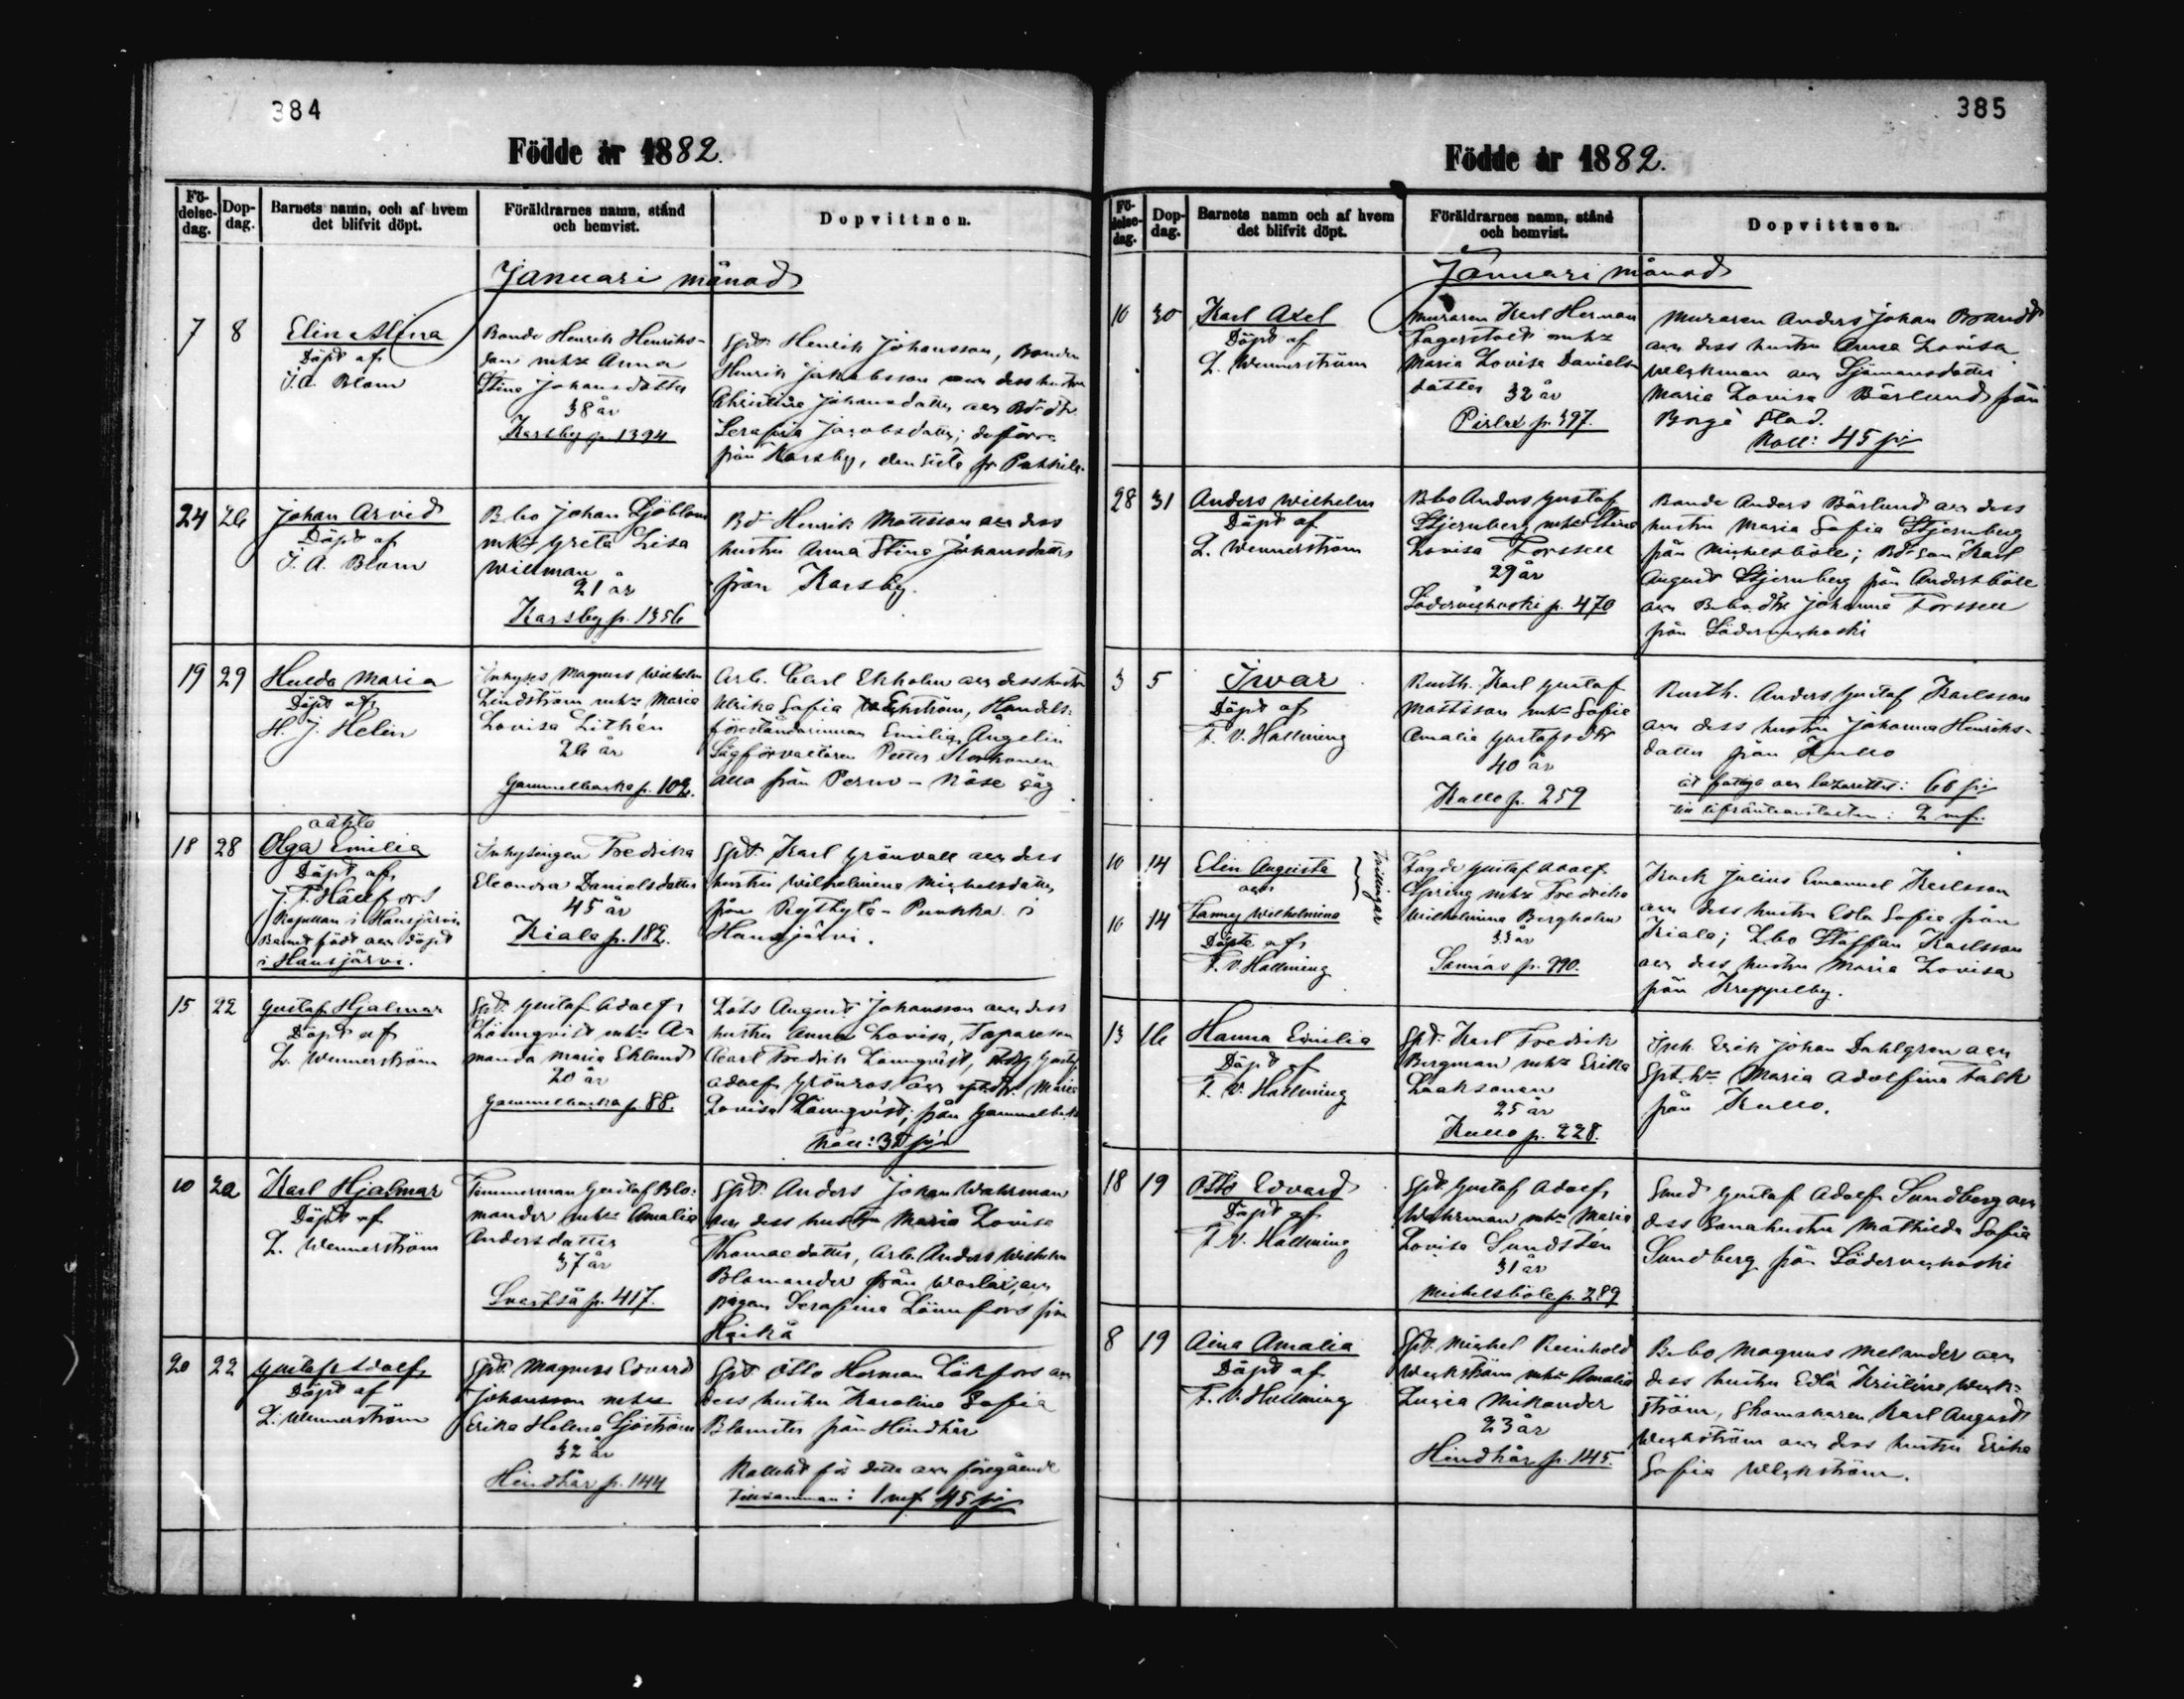 384
Födde år 1882.
Fö-
delse-
dag.
Dop-
dag.
Barnets namn, och af hvem
det blifvit döpt.
Föräldrarnes namn, stånd
och hemvist.
Dopvittnen.
Januari månad
7 8
Elin Alina
Döpt af
J. A. Blom
Bonde Henrik Henriks-
son mhu Anna
Stina Johansdotter
38 år
Karsby p. 1394
Spt. Henrik Johansson, Bonden
Henrik Jakobsson dess hustru
Christina Johansdotter
Serafia Jacobsdotter;
från Karsby, den sista fr
24 26
Johan Arvid
Döpt af
J. A. Blom
B. bo Johan Sjöblom
mhu Greta Lisa
Willman
21 år
Karsby p. 1356
Bd. Henrik Mattsson och dess
hustru Anna Stina Johansdotter
från Karsby.
19 29
Hulda Maria
Döpt af
H. J. Helin
Inhyses Magnus Wilhelm
Lindström mhu Maria
Lovisa Lithén
26 år
Gammelbacka p. 102.
Arb. Carl Ekholm och dess hustru
Ulrika Sofia Ekström, Handels-
föreståndarinnan Emilia Ångelin
Sågförvaltaren Petter Korhonen
alla från Perno - Näse såg
oäkta
18 28
Olga Emilia
Döpt af
J. F. Hällfors
Kapellan i Hausjärvi
Barnet född och döpt
i Hausjärvi.
Inhysingen Fredrika
Eleonora Danielsdotter
45 år
Kiala p. 182.
Spt. Karl Grönvall och dess
hustru Wilhelmina Michelsdotter
från
Hausjärvi.
15 22
Gustaf Hjalmar
Döpt af
L. Wennerström
Spt. Gustaf Adolf
Lönnqvist mhu A-
manda Maria Eklund
20 år
Gammelbacka p. 88.
Lots August Johansson och dess
hustru Anna Lovisa,
Carl Fredrik Lönnqvist, Gustaf
Adolf Grönros och Maria
Lovisa Lönnqvist, från Gammelbacka
10 22
Karl Hjalmar
Döpt af
L. Wennerström
Timmerman Gustaf Blo-
mander mhu Amalia
Andersdotter
37 år
Svartså p. 417.
Spt. Anders Johan Wahrman
och dess hustru Maria Lovisa
Thomasdotter, Arb. Anders Wilhelm
Blomander från
pigan Serafina Lönnfors från
Haikå
20 22
Gustaf Adolf
Döpt af
L. Wennerström
Spt. Magnus Edvard
Johansson mhu
Erika Helena Sjöström
32 år
Hindhår p. 144
Spt. Otto Herman Löfors och
dess hustru Karolina Sofia
Blomster från Hindhår
Kollekt för detta och föregående
tillsamman: 1 mf 45 p:i
385
Födde år 1882.
Fö-
delse-
dag.
Dop-
dag.
Barnets namn och af hvem
det blifvit döpt.
Föräldrarnes namn, stånd
och hemvist.
Dopvittnen.
Januari månad
10 30
Karl Axel
Döpt af
L. Wennerström
Muraren Karl Herman
Fagerstedt mhu
Maria Lovisa Daniels-
dotter 32 år
Pirlax p. 397.
Muraren Anders Johan Brandt
och dess hustru Anna Lovisa
och Sjömansdotter
Maria Lovisa Bärlund från
Borgå Stad.
Koll: 45 p:i
28 31
Anders Wilhelm
Döpt af
L. Wennerström
B.bo Anders Gustaf
Stjernberg mhu Stina
Lovisa Forssell
29 år
Söderveckoski p. 470
Bonde Anders Bärlund och dess
hustru Maria Sofia Stjernberg
från Mickelsböle; Bd. son Karl
August Stjernberg från Andersböle
och B.bodtr Johanna Forssell
från Söderveckoski
3 5
Ivar
Döpt af
F. V. Hallming
Rusth. Karl Gustaf
Mattsson mhu Sofia
Amalia Gustafsdtr
40 år
Kullo p. 259
Rusth. Anders Gustaf Karlsson
och dess hustru Johanna Henriks-
dotter från Kullo
åt fattiga och lazarettet: 66 p:i
till lifränteanstalten: 2 mf.
10 14
Elin Augusta
och
10 14
Fanny Wilhelmina
Döpte af
F. V. Hallming
Tvillingar
Gustaf Adolf
Spring mhu Fredrika
Wilhelmina Bergholm
33 år
Sannäs p. 990.
Kusk Julius Emanuel Karlsson
och dess hustru Edla Sofia från
Kiala; L.bo Staffan Karlsson
och dess hustru Maria Lovisa
från Kreppelby.
13 16
Hanna Emilia
Döpt af
F. V. Hallming
Spt. Karl Fredrik
Bergman mhu Erika
Laaksonen
25 år
Kullo p. 228.
Inh. Erik Johan Dahlgren och
Spt. hu Maria Adolfina Falk
från Kullo.
18 19
Otto Edvard
Döpt af
F. V. Hallming
Spt. Gustaf Adolf
Wahrman mhu Maria
Lovisa Sundsten
31 år
Mickelsböle p. 289
Smed Gustaf Adolf Sundberg och
dess sonahustru Mathilda Sofia
Sundberg från Söderveckoski
8 19
Aina Amalia
Döpt af
F. V. Hallming
Spt. Mickel Reinhold
Weckström mhu Amalia
Lucia Mikander
23 år
Hindhår p. 145.
B.bo Magnus Melander och
dess hustru Edla Kristina Weck-
ström, Skomakaren Karl August
Weckström och dess hustru Erika
Sofia Weckström.